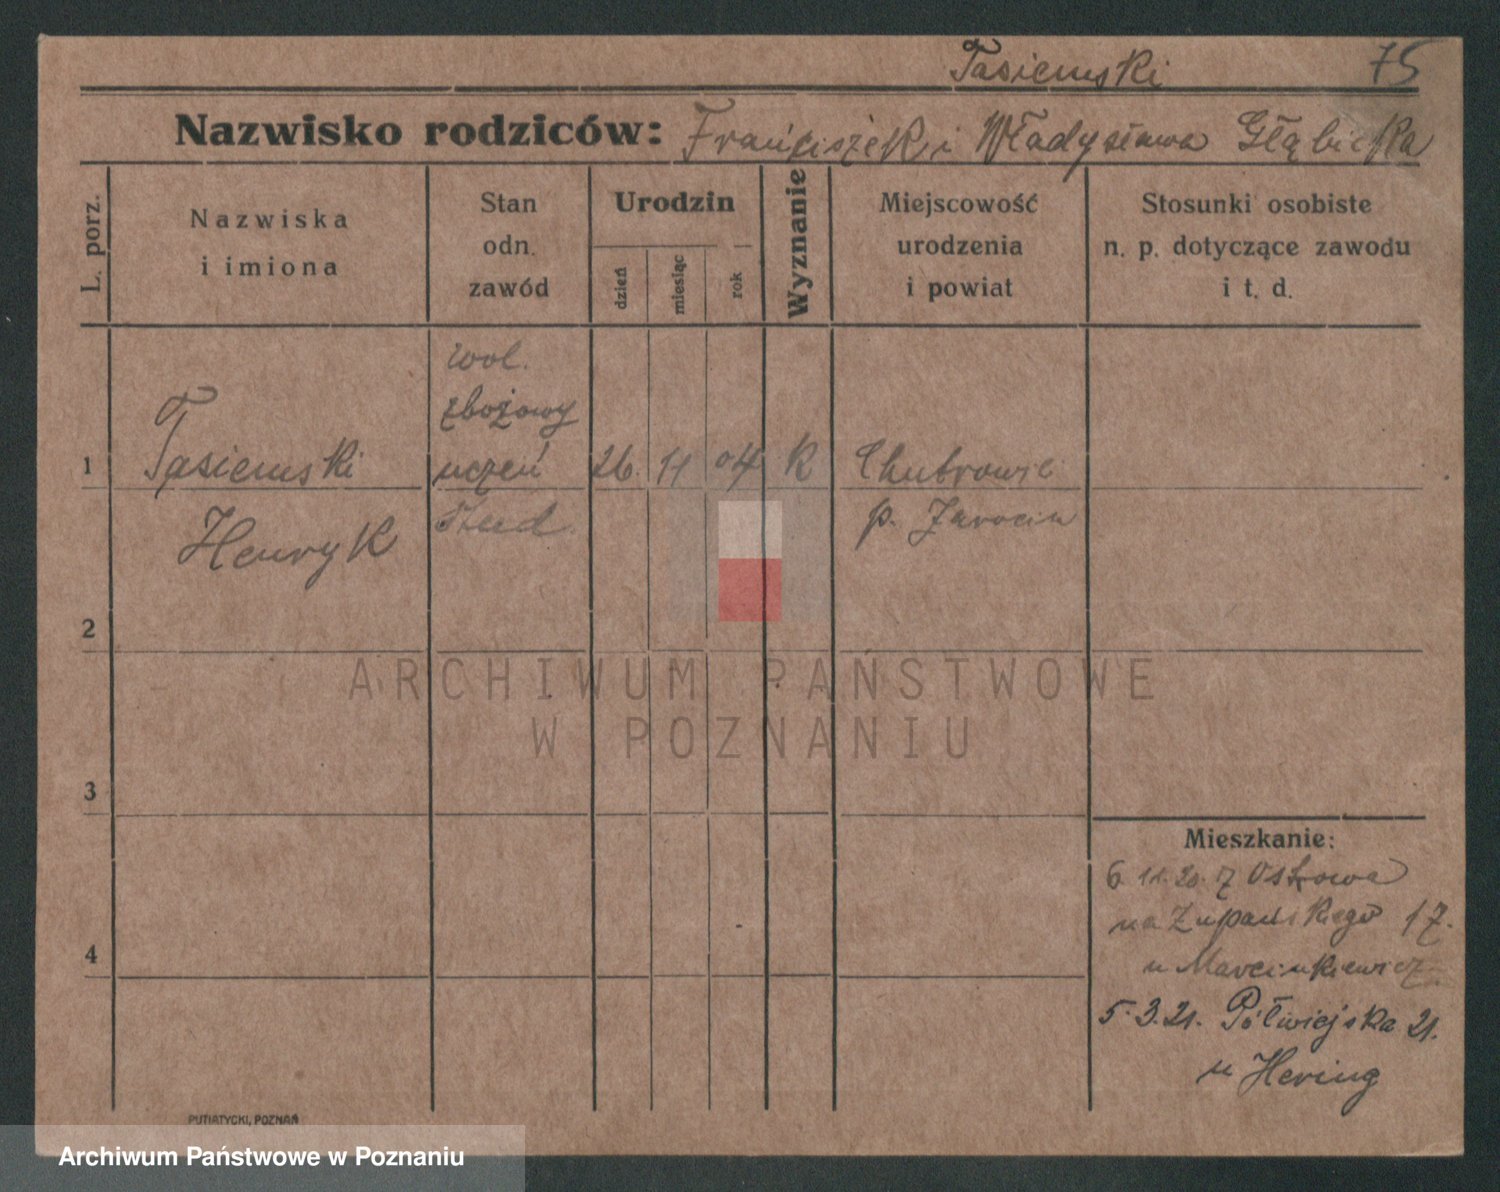 Tasiemski 75
Nazwisko rodziców: Franciszek i Władysława Głąbicka
L. porz.
Nazwiska
i imiona
Stan
odn.
zawód
Urodzin
dzień
miesiąc
rok
Wyznanie
Miejscowość
urodzenia
i powiat
Stosunki osobiste
n. p. dotyczące zawodu
i t. d.
wol.
zbożowy
1 Tasiemski uczeń 26. 11 04 K
Henryk stud. p. Jarocin
2
3
4
ARCHIWUM PAŃSTWOWE
W POZNANIU
Mieszkanie:
6 11. 20. z Ostrowa
na Zupańskiego 17.
u Marcinkiewicz
5. 3. 21. Półwiejska 21.
u Hering
PUTIATYCKI, POZNAŃ
Archiwum Państwowe w Poznaniu